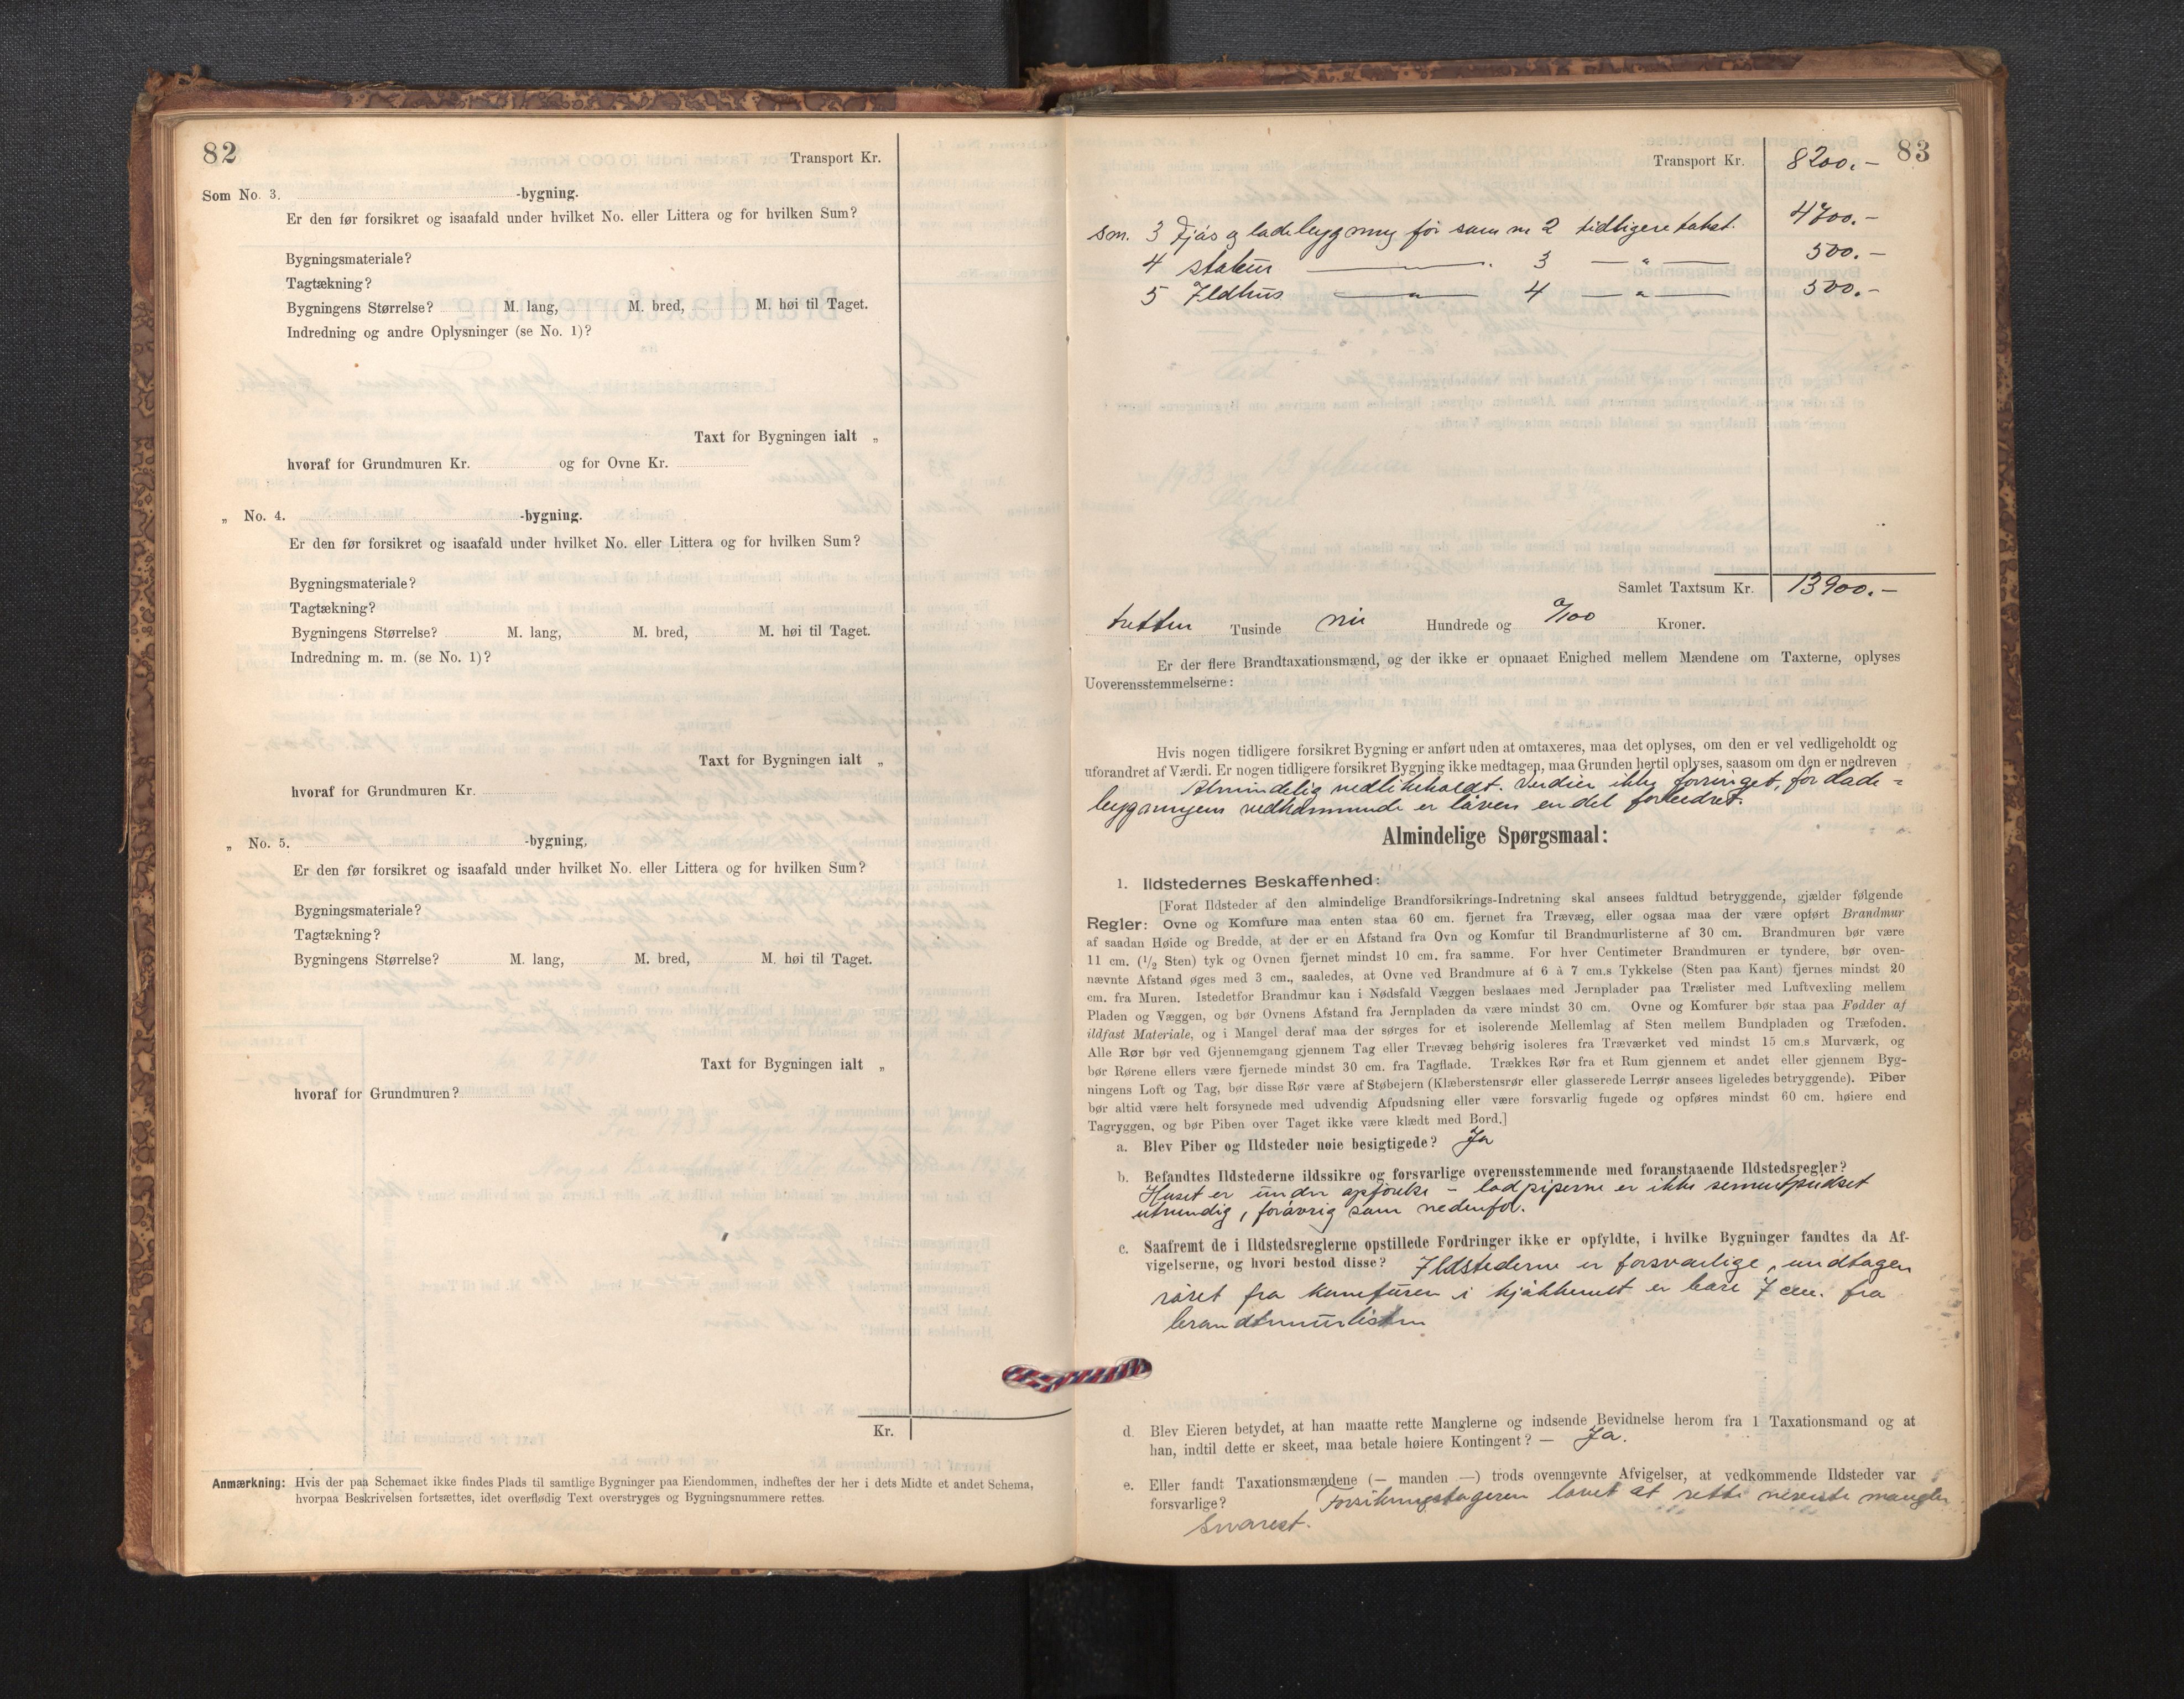 82
Transport Kr.
Som No. 3. -bygning.
Er den før forsikret og isaafald under hvilket No. eller Littera og for hvilken Sum?
Bygningsmateriale?
Tagtækning?
Bygningens Størrelse? M. lang, M. bred, M. høi til Taget.
Indredning og andre Oplysninger (se No. 1)?
Taxt for Bygningen ialt „
hvoraf for Grundmuren Kr. og for Ovne Kr.
„ No. 4. -bygning.
Er den før forsikret og isaafald under hvilket No. eller Littera og for hvilken Sum?
Bygningsmateriale?
Tagtækning?
Bygningens Størrelse? M. lang, M. bred, M. høi til Taget.
Indredning m. m. (se No. 1)?
Taxt for Bygningen ialt „
hvoraf for Grundmuren Kr.
„ No. 5. -bygning,
Er den før forsikret og isaafald under hvilket No. eller Littera og for hvilken Sum?
Bygningsmateriale?
Tagtækning?
Bygningens Størrelse? M. lang, M. bred, M. høi til Taget.
Taxt for Bygningen ialt „
hvoraf for Grundmuren?
Kr.
Anmærkning: Hvis der paa Schemaet ikke findes Plads til samtlige Bygninger paa Eiendommen, indheftes der her i dets Midte et andet Schema,
hvorpaa Beskrivelsen fortsættes, idet overflødig Text overstryges og Bygningsnummere rettes.
83
Transport Kr. 8200.-
Som. 3 Fjøs og ladebygning før som no 2 tidligere takst. 4700.-
4 stabur — 3 — " — 500.-
5 Ildhus — " — 4 — " — 500.-
Samlet Taxtsum Kr. 13900.-
tretten Tusinde ni Hundrede og 0/100 Kroner.
Er der flere Brandtaxationsmænd, og der ikke er opnaaet Enighed mellem Mændene om Taxterne, oplyses
Uoverensstemmelserne:
Hvis nogen tidligere forsikret Bygning er anført uden at omtaxeres, maa det oplyses, om den er vel vedligeholdt og
uforandret af Værdi. Er nogen tidligere forsikret Bygning ikke medtagen, maa Grunden hertil oplyses, saasom om den er nedreven
Almindelig vedlikeholdt. Verdien ikke forringet, for lade=
bygningens vedkommende er låven en del forbedret.
Almindelige Spørgsmaal:
1. Ildstedernes Beskaffenhed:
[Forat Ildsteder af den almindelige Brandforsikrings-Indretning skal ansees fuldtud betryggende, gjælder følgende
Regler: Ovne og Komfure maa enten staa 60 cm. fjernet fra Trævæg, eller ogsaa maa der være opført Brandmur
af saadan Høide og Bredde, at der er en Afstand fra Ovn og Komfur til Brandmurlisterne af 30 cm. Brandmuren bør være
11 cm. (1/2 Sten) tyk og Ovnen fjernet mindst 10 cm. fra samme. For hver Centimeter Brandmuren er tyndere, bør oven-
nævnte Afstand øges med 3 cm., saaledes, at Ovne ved Brandmure af 6 à 7 cm.s Tykkelse (Sten paa Kant) fjernes mindst 20
cm. fra Muren. Istedetfor Brandmur kan i Nødsfald Væggen beslaaes med Jernplader paa Trælister med Luftvexling mellem
Pladen og Væggen, og bør Ovnens Afstand fra Jernpladen da være mindst 30 cm. Ovne og Komfurer bør staa paa Fødder af
ildfast Materiale, og i Mangel deraf maa der sørges for et isolerende Mellemlag af Sten mellem Bundpladen og Træfoden.
Alle Rør bør ved Gjennemgang gjennem Tag eller Trævæg behørig isoleres fra Træværket ved mindst 15 cm.s Murværk, og
bør Rørene ellers være fjernede mindst 30 cm. fra Tagflade. Trækkes Rør fra et Rum gjennem et andet eller gjennem Byg-
ningens Loft og Tag, bør disse Rør være af Støbejern (Klæberstensrør eller glasserede Lerrør ansees ligeledes betryggende). Piber
bør altid være helt forsynede med udvendig Afpudsning eller være forsvarlig fugede og opføres mindst 60 cm. høiere end
Tagryggen, og bør Piben over Taget ikke være klædt med Bord.]
a. Blev Piber og Ildsteder nøie besigtigede? Ja
b. Befandtes Ildstederne ildssikre og forsvarlige overensstemmende med foranstaaende Ildstedsregler?
Huset er under opførelse - lodpiperne er ikke sementpudset
utvendig, forøvrig som nedenfor.
c. Saafremt de i Ildstedsreglerne opstillede Fordringer ikke er opfyldte, i hvilke Bygninger fandtes da Af-
vigelserne, og hvori bestod disse? Ildstederne er forsvarlige, undtagen
røret fra komfuren i kjøkkenet er bare 7 cm. fra
brandtmurlisten
d. Blev Eieren betydet, at han maatte rette Manglerne og indsende Bevidnelse herom fra 1 Taxationsmand og at
han, indtil dette er skeet, maa betale høiere Kontingent? — Ja.
e. Eller fandt Taxationsmændene (— manden —) trods ovennævnte Afvigelser, at vedkommende Ildsteder var
forsvarlige? Forsikringstageren lovet at rette nevnte mangler
snarest.